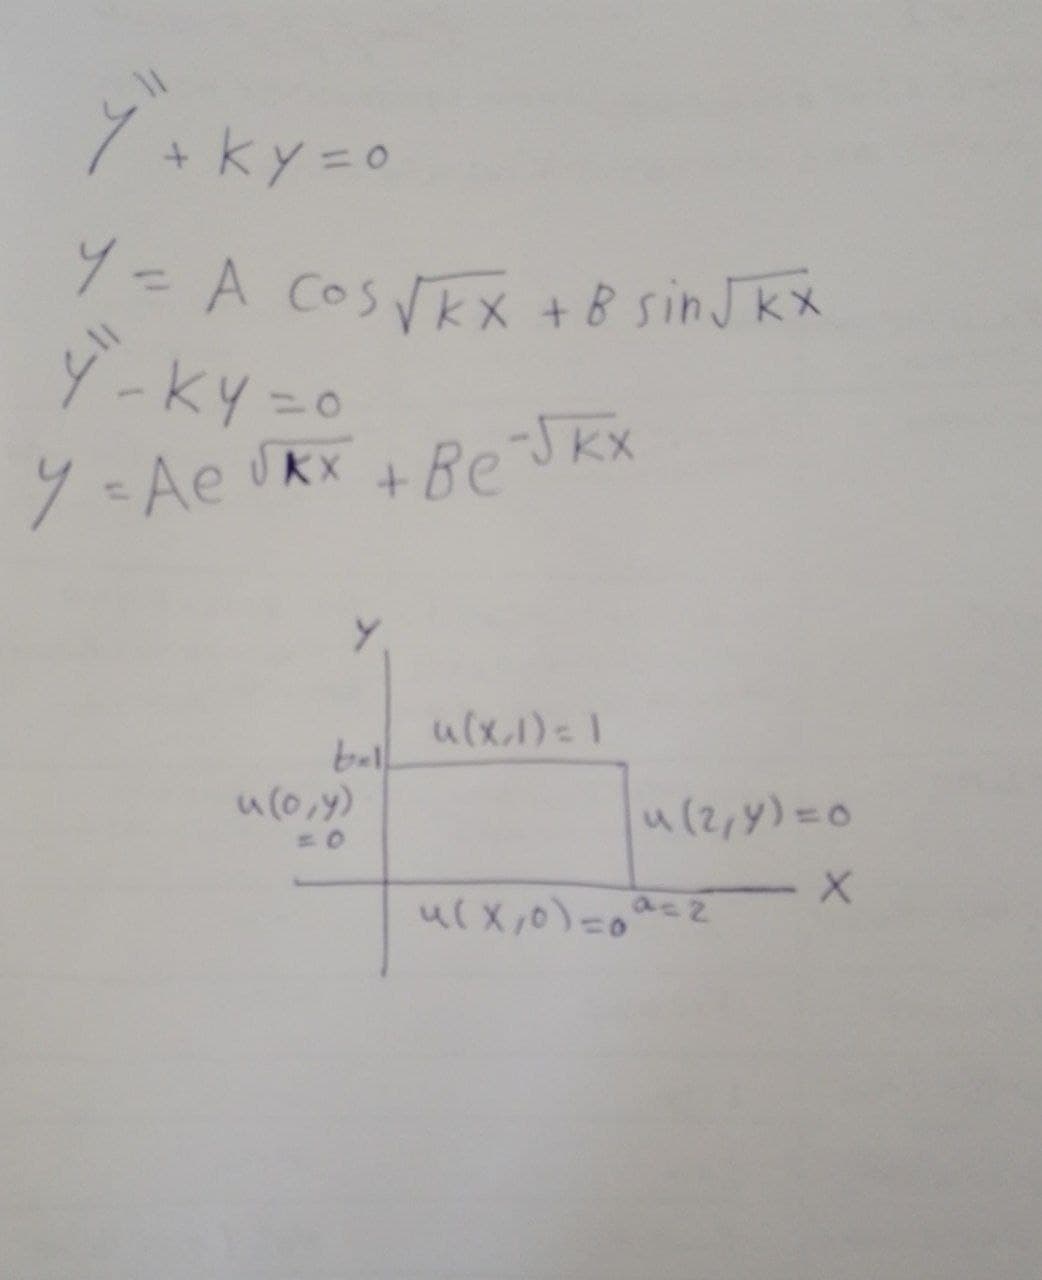 y" + ky = 0
y = A cos √kx + B sin √kx
y" - ky = 0
y = Ae^√kx + Be^-√kx
y
u(x,1) = 1
b=1
u(0,y)
= 0
u(2,y) = 0
x
u(x,0) = 0
a=2